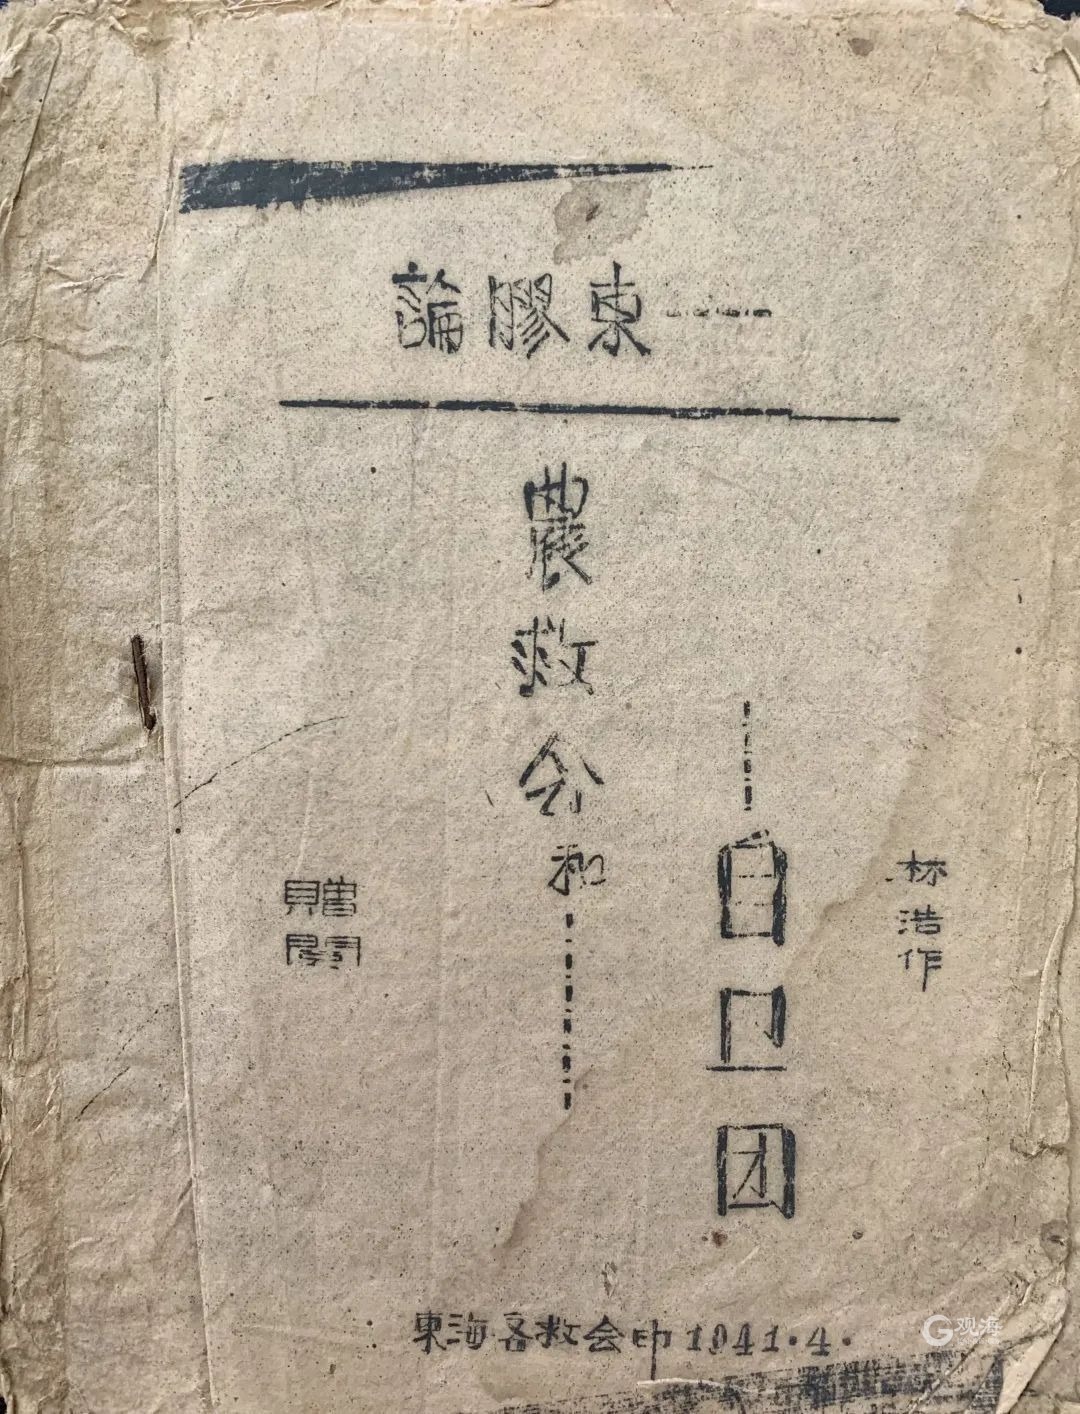 論膠東
農救会和
自卫团
林浩作
贈閱
東海各救会印1941.4.
G观海